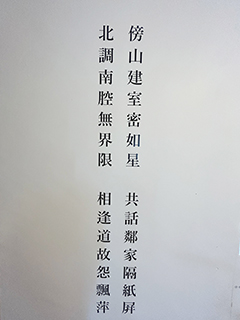 傍山建室密如星　共話鄰家隔紙屏
北調南腔無界限　相逢道故怨飄萍